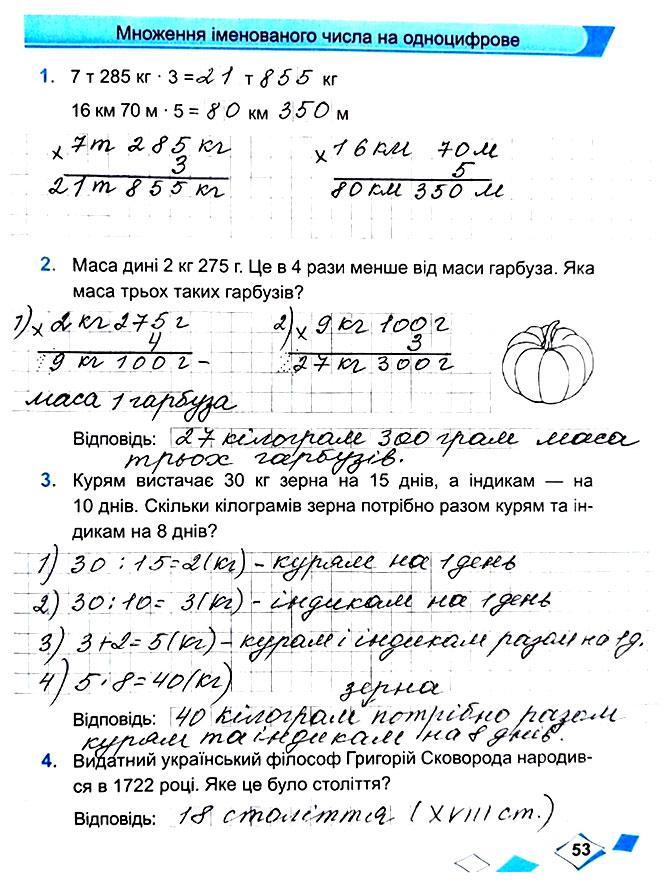 Множення іменованого числа на одноцифрове
1. 7 т 285 кг · 3 = 21 т 855 кг
16 км 70 м · 5 = 80 км 350 м
х 7т 285 кг х 16 км 70 м
3 5
21т 855 кг 80 км 350 м
2. Маса дині 2 кг 275 г. Це в 4 рази менше від маси гарбуза. Яка
маса трьох таких гарбузів?
1) х 2 кг 275 г 2) х 9 кг 100 г
4 3
9 кг 100 г – 27 кг 300 г
маса 1 гарбуза
Відповідь: 27 кілограм 300 грам маса
трьох гарбузів.
3. Курям вистачає 30 кг зерна на 15 днів, а індикам — на
10 днів. Скільки кілограмів зерна потрібно разом курям та ін-
дикам на 8 днів?
1) 30 : 15 = 2 (кг) – курям на 1 день
2) 30 : 10 = 3 (кг) – індикам на 1 день
3) 3 + 2 = 5 (кг) – курам і індикам разом на 1 д.
4) 5 · 8 = 40 (кг) зерна
Відповідь: 40 кілограм потрібно разом
курям та індикам на 8 днів.
4. Видатний український філософ Григорій Сковорода народив-
ся в 1722 році. Яке це було століття?
Відповідь: 18 століття (XVIII ст.)
53